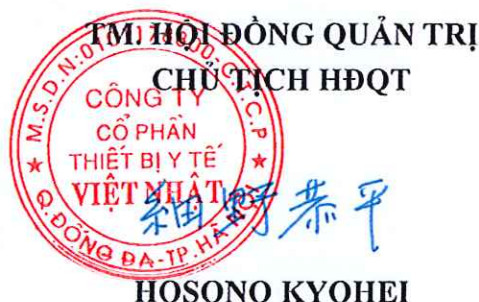 TM. HỘI ĐỒNG QUẢN TRỊ
CHỦ TỊCH HĐQT
CÔNG TY
CỔ PHẦN
THIẾT BỊ Y TẾ
VIỆT NHẬT
Q. ĐỐNG ĐA-TP. HÀ
細野恭平
HOSONO KYOHEI